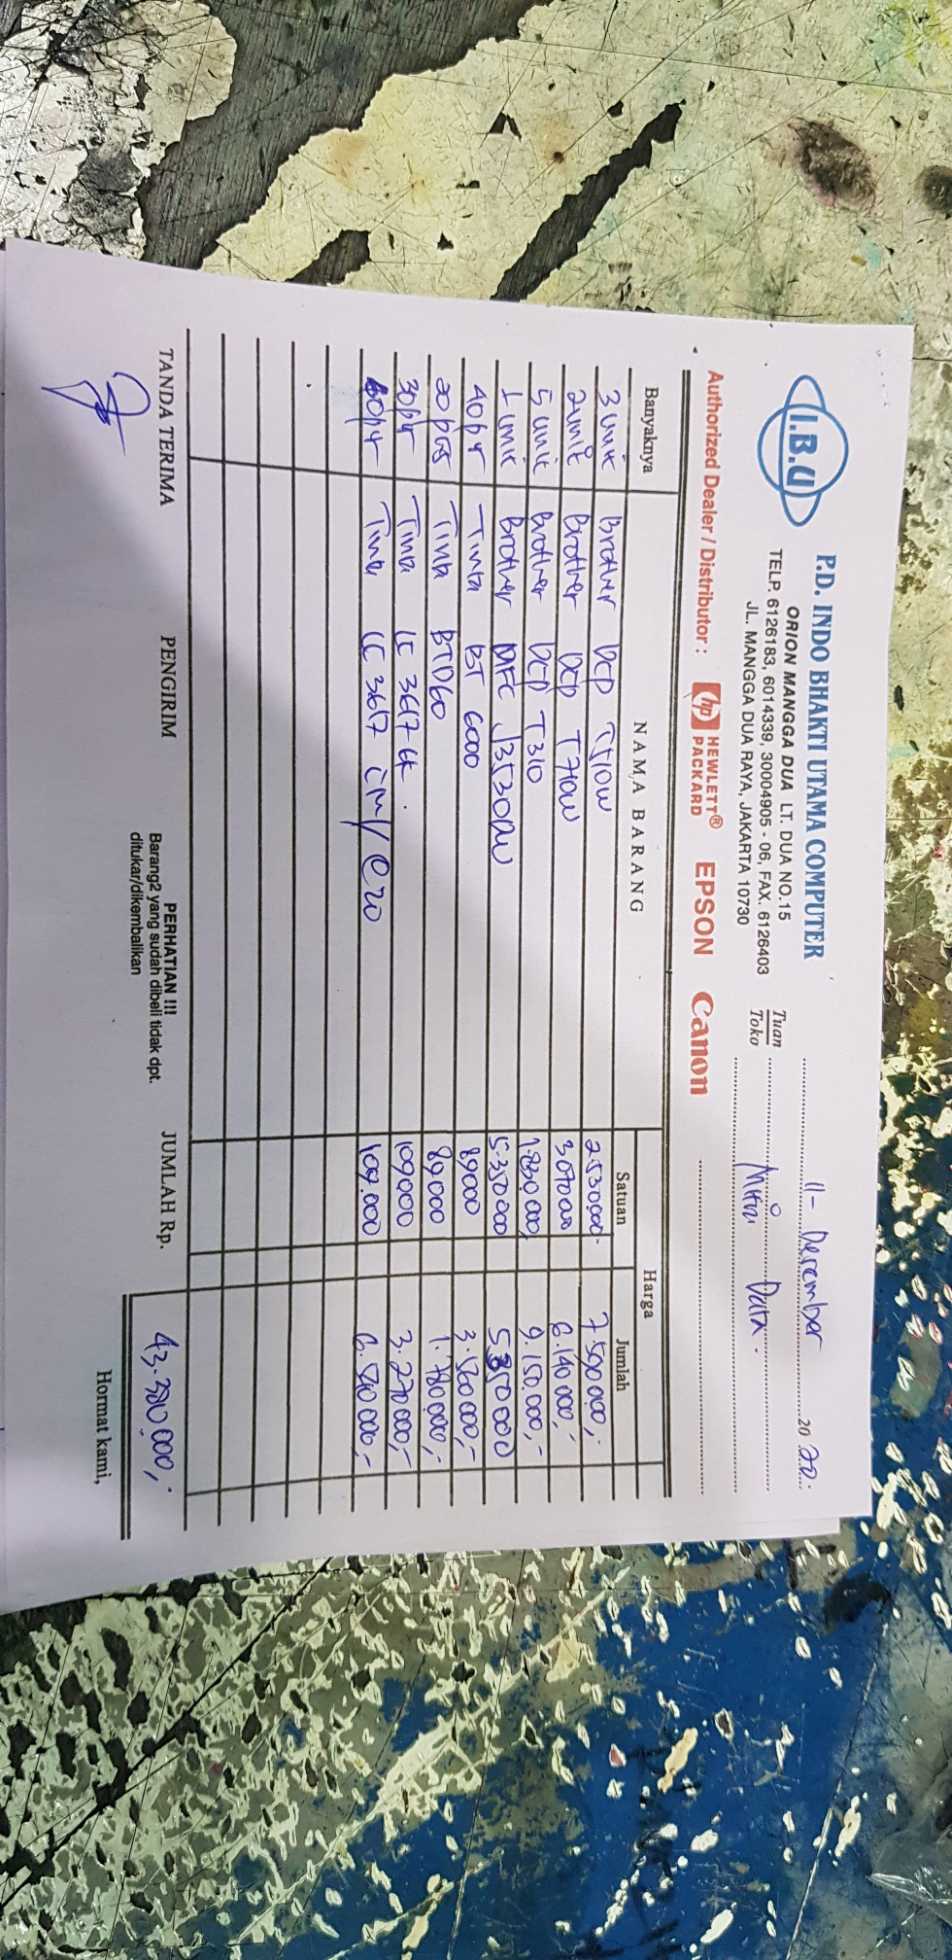 I.B.U
P.D. INDO BHAKTI UTAMA COMPUTER
ORION MANGGA DUA LT. DUA NO.15
TELP. 6126183, 6014339, 30004905 - 06, FAX. 6126403
JL. MANGGA DUA RAYA, JAKARTA 10730
11 - December 2020.
Tuan
Toko
Mitra Data.
Authorized Dealer / Distributor : hp HEWLETT® PACKARD EPSON Canon
Banyaknya NAMA BARANG Harga
Satuan Jumlah
3 unit Brother DCP T510W 2.530.000- 7.590.000,-
2 unit Brother DCP T710W 3070.000 6.140.000,-
5 unit Brother DCP T310 1.830.000, 9.150.000,-
1 unit Brother MFC J3530DW 5.350.000 5350000
40 pt Tinta BT 6000 89000 3.560.000,-
20 pcs Tinta BTD60 89.000 1.780.000,-
30 pt Tinta LC 3617 BK. 109000 3.270.000,-
60 pt Tinta LC 3617 C M Y @20 109.000 6.540.000,-
TANDA TERIMA PENGIRIM
PERHATIAN !!!
Barang2 yang sudah dibeli tidak dpt.
ditukar/dikembalikan
JUMLAH Rp. 43.380.000,-
Hormat kami,